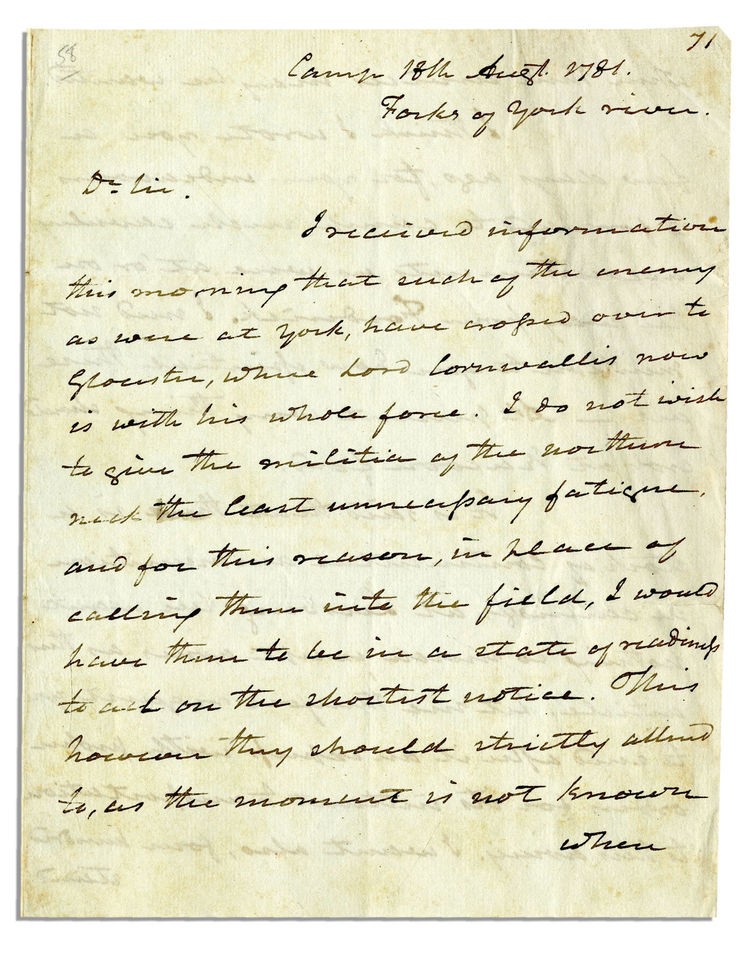 58
71
Camp 18th Augt. 1781.
Forks of York river.
Dr. Sir.
I received information
this morning that such of the enemy
as were at York, have crossed over to
Glocester, where Lord Cornwallis now
is with his whole force. I do not wish
to give the militia of the northern
neck the least unnecessary fatigue,
and for this reason, in place of
calling them into the field, I would
have them to be in a state of readiness
to act on the shortest notice. This
however they should strictly attend
to, as the moment is not known
when